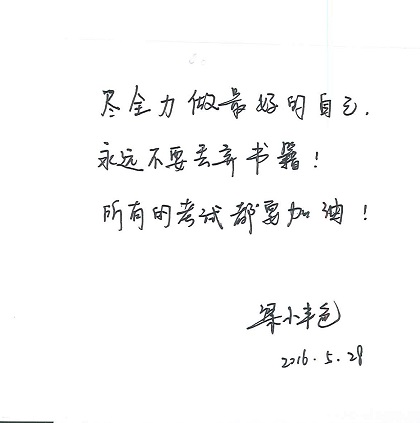 尽全力做最好的自己.
永远不要丢弃书籍!
所有的考试都要加油!
梁小丰色
2016.5.29